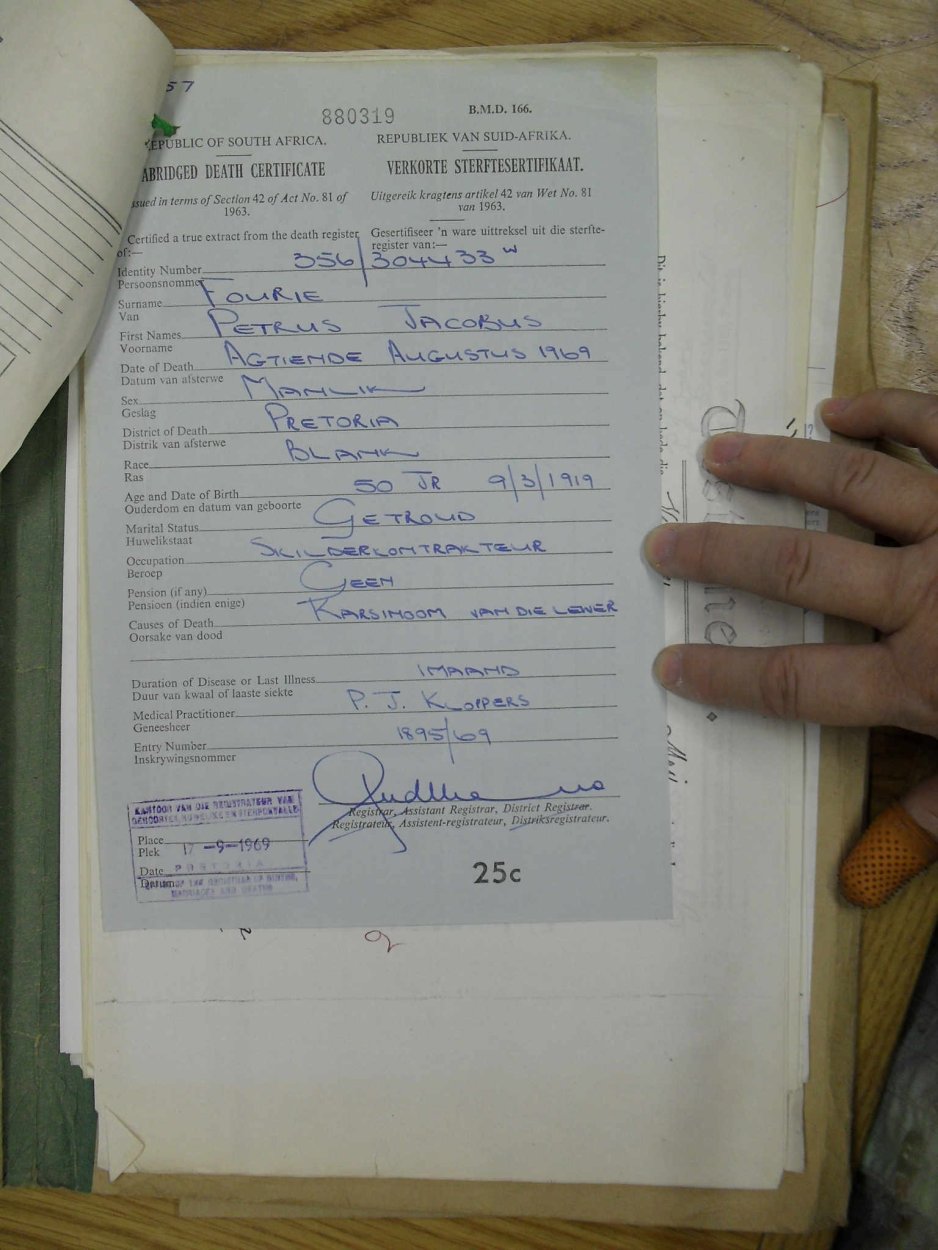 57
880319
B.M.D. 166.
REPUBLIC OF SOUTH AFRICA. REPUBLIEK VAN SUID-AFRIKA.
ABRIDGED DEATH CERTIFICATE VERKORTE STERFTESERTIFIKAAT.
issued in terms of Section 42 of Act No. 81 of 1963.
Uitgereik kragtens artikel 42 van Wet No. 81 van 1963.
Certified a true extract from the death register of:—
Gesertifiseer 'n ware uittreksel uit die sterfte-register van:—
Identity Number 356/304433 W
Persoonsnommer
Surname FOURIE
Van
First Names PETRUS JACOBUS
Voorname
Date of Death AGTIENDE AUGUSTUS 1969
Datum van afsterwe
Sex MANLIK
Geslag
District of Death PRETORIA
Distrik van afsterwe
Race BLANK
Ras
Age and Date of Birth 50 JR 9/3/1919
Ouderdom en datum van geboorte
Marital Status GETROUD
Huwelikstaat
Occupation SKILDERKONTRAKTEUR
Beroep
Pension (if any) GEEN
Pensioen (indien enige)
Causes of Death KARSINOOM VAN DIE LEWER
Oorsake van dood
Duration of Disease or Last Illness 1 MAAND
Duur van kwaal of laaste siekte
Medical Practitioner P. J. KLOPPERS
Geneesheer
Entry Number 1895/69
Inskrywingsnommer
Registrar, Assistant Registrar, District Registrar.
Registrateur, Assistent-registrateur, Distriksregistrateur.
KANTOOR VAN DIE REGISTRATEUR VAN
Place
Plek 17-9-1969
Date PRETORIA
Datum
25c